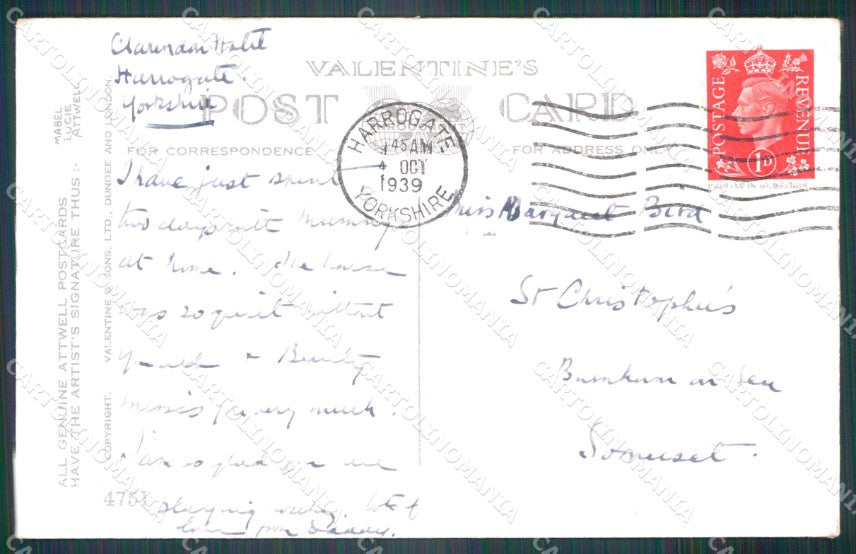 Clarendon Hotel
Harrogate.
Yorkshire
VALENTINE'S
POST CARD
FOR CORRESPONDENCE
FOR ADDRESS ONLY
HARROGATE
1 45 AM
4 OCT
1939
YORKSHIRE
POSTAGE
REVENUE
1D
PRINTED IN GT. BRITAIN
I have just spent
two days with Mummy
at home. The house
was so quiet without
you and Bunty
misses you very much.
I am so glad you are
playing
love from Daddy.
Miss Margaret Bird
St Christopher's
Burnham on Sea
Somerset.
ALL GENUINE ATTWELL POSTCARDS
HAVE THE ARTIST'S SIGNATURE THUS :-
MABEL
LUCIE
ATTWELL
COPYRIGHT. VALENTINE & SONS, LTD., DUNDEE AND LONDON.
4751
CARTOLINOMANIA